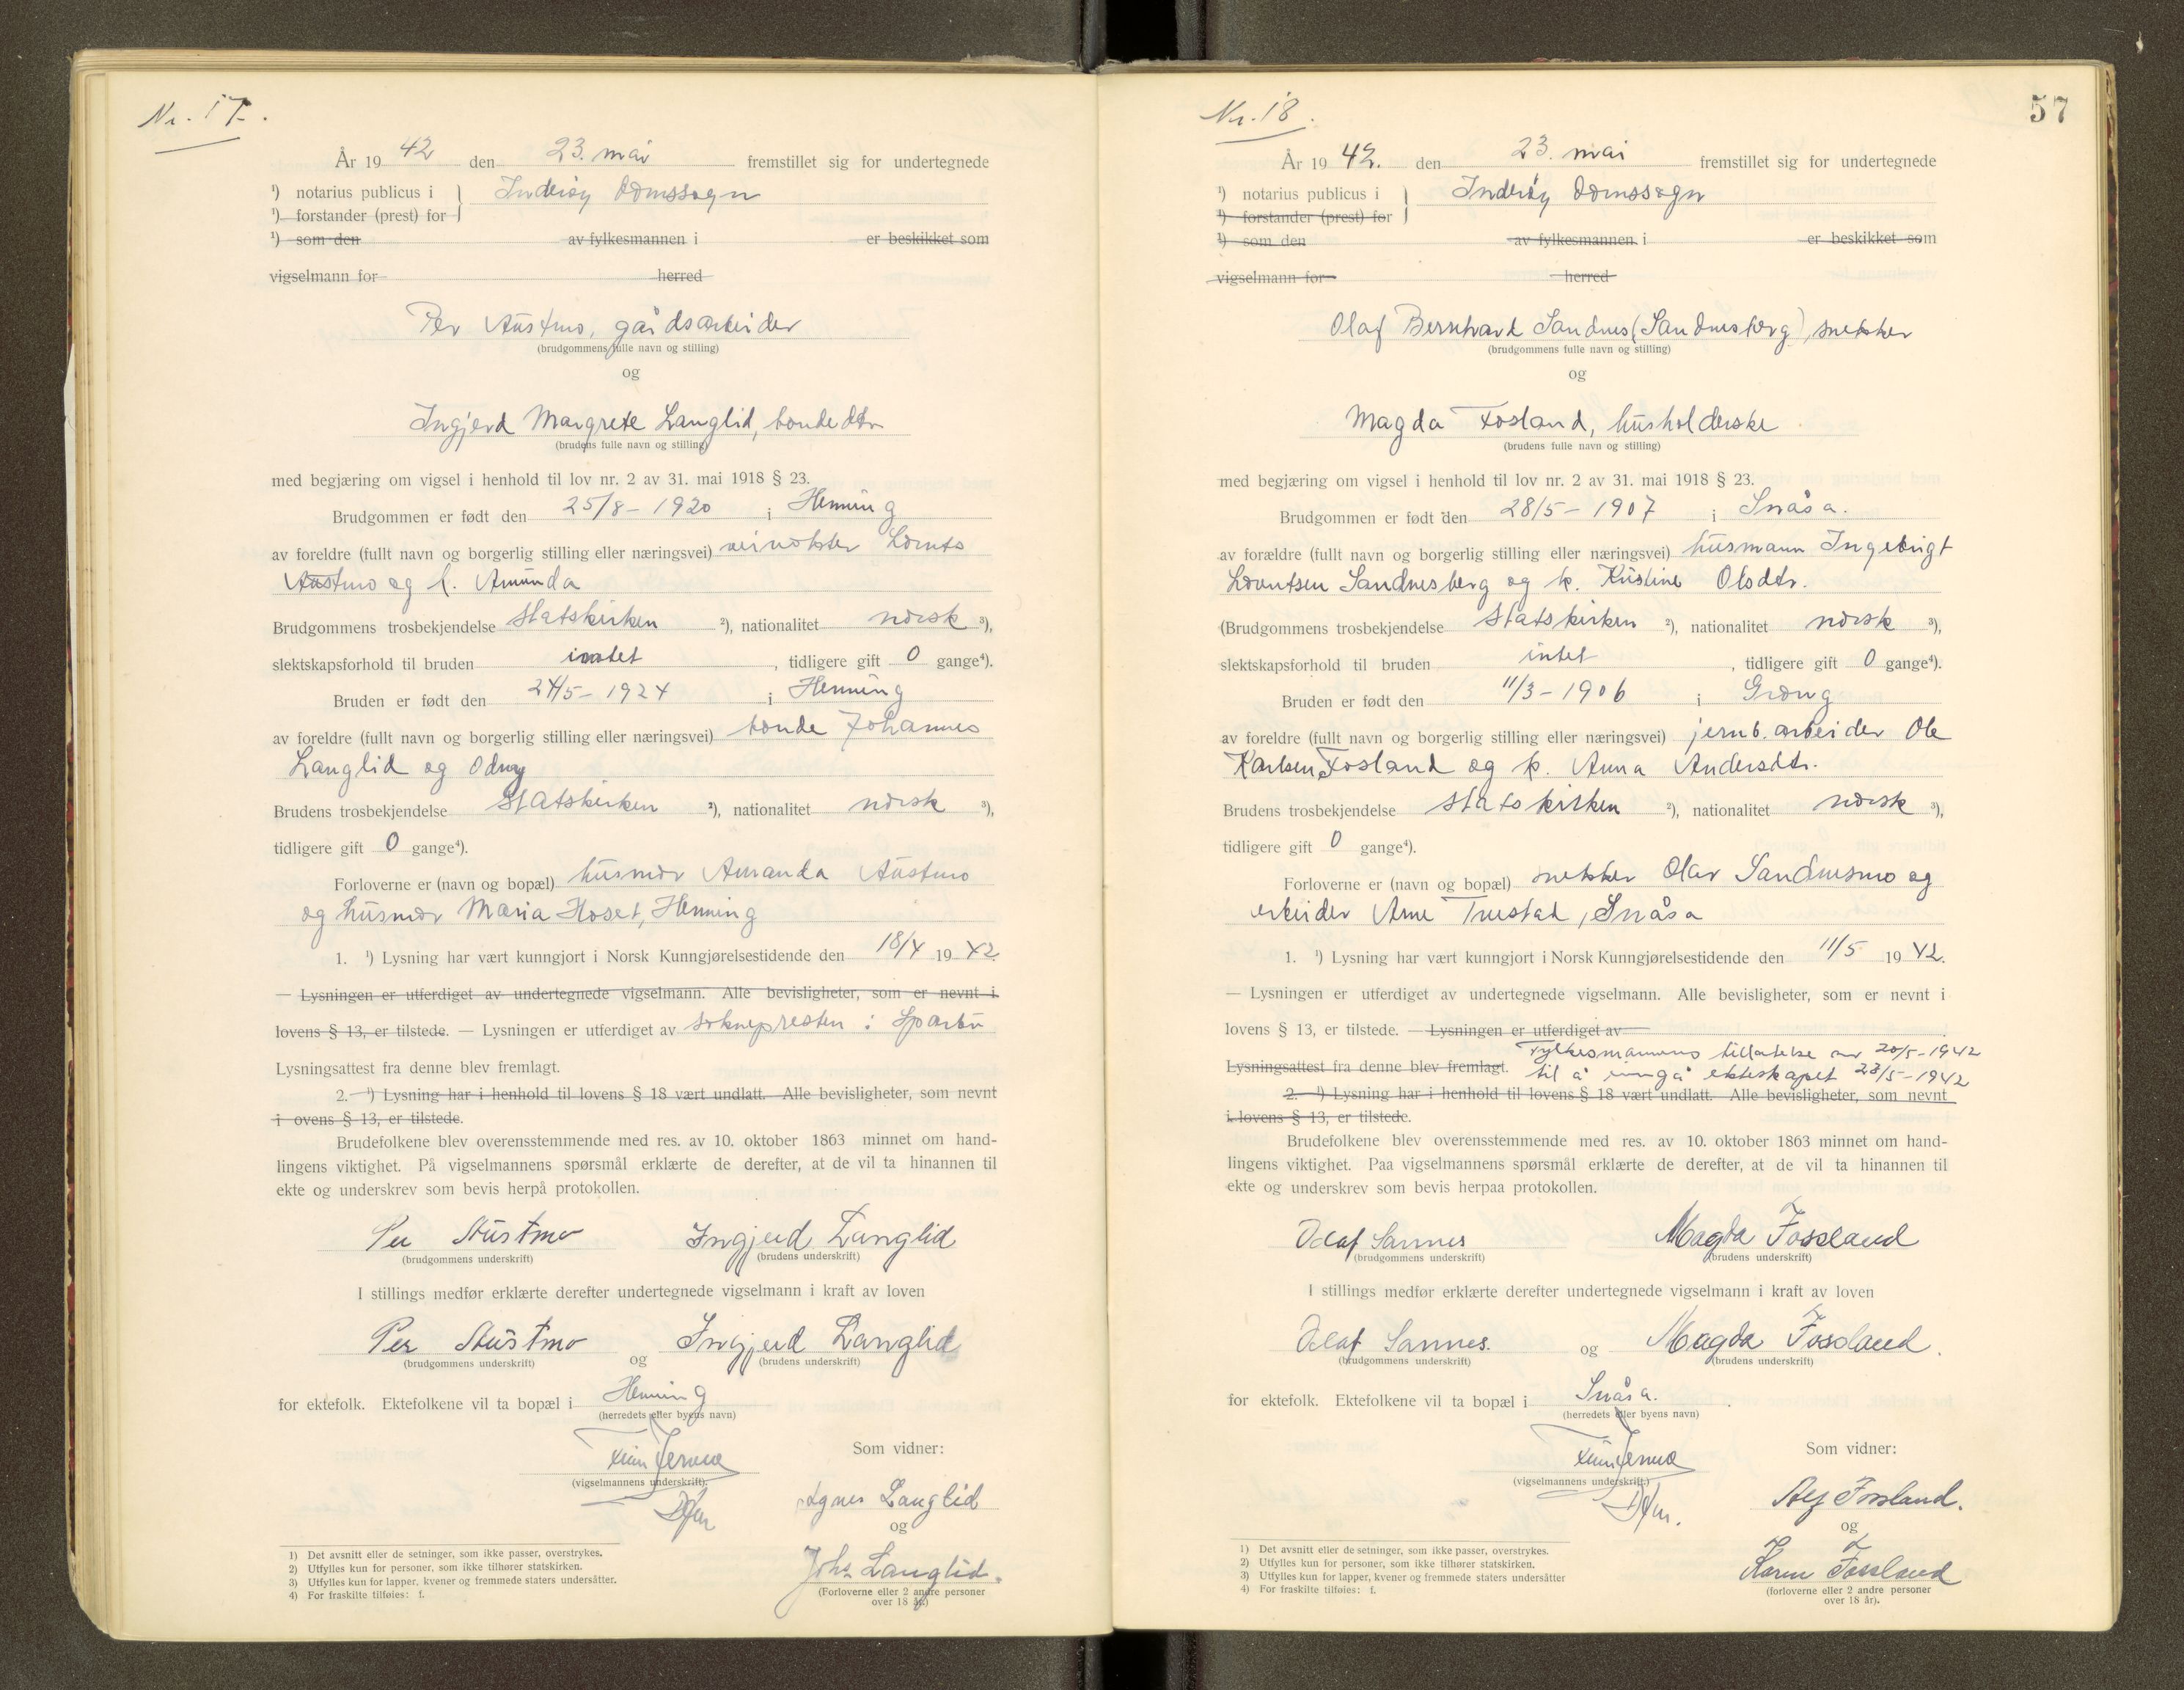 Nr. 17.
År 19 42 den 23. mai fremstillet sig for undertegnede
¹) notarius publicus i } Inderöy domssogn
¹) forstander (prest) for
¹) som den av fylkesmannen i er beskikket som
vigselmann for herred
Per Austmo, gårdsarbeider
(brudgommens fulle navn og stilling)
og
Ingjerd Margrete Langlid, bondedtr
(brudens fulle navn og stilling)
med begjæring om vigsel i henhold til lov nr. 2 av 31. mai 1918 § 23.
Brudgommen er født den 25/8 - 1920 i Henning
av foreldre (fullt navn og borgerlig stilling eller næringsvei) Lornts
Austmo og h. Amunda
Brudgommens trosbekjendelse Statskirken ²), nationalitet norsk ³),
slektskapsforhold til bruden intet , tidligere gift 0 gange⁴).
Bruden er født den 24/5 - 1924 i Henning
av foreldre (fullt navn og borgerlig stilling eller næringsvei) bonde Johannes
Langlid og Odny
Brudens trosbekjendelse Statskirken ²), nationalitet norsk ³),
tidligere gift 0 gange⁴).
Forloverne er (navn og bopæl) husmor Amanda Austmo
og husmor Maria Hoset, Henning
1. ¹) Lysning har vært kunngjort i Norsk Kunngjørelsestidende den 18/4 1942.
— Lysningen er utferdiget av undertegnede vigselmann. Alle bevisligheter, som er nevnt i
lovens § 13, er tilstede. — Lysningen er utferdiget av soknepresten i Sparbu
Lysningsattest fra denne blev fremlagt.
2. ¹) Lysning har i henhold til lovens § 18 vært undlatt. Alle bevisligheter, som nevnt
i ovens § 13, er tilstede.
Brudefolkene blev overensstemmende med res. av 10. oktober 1863 minnet om hand-
lingens viktighet. På vigselmannens spørsmål erklærte de derefter, at de vil ta hinannen til
ekte og underskrev som bevis herpå protokollen.
Per Austmo Ingjerd Langlid
(brudgommens underskrift) (brudens underskrift)
I stillings medfør erklærte derefter undertegnede vigselmann i kraft av loven
Per Austmo og Ingjerd Langlid
(brudgommens underskrift) (brudens underskrift)
for ektefolk. Ektefolkene vil ta bopæl i Henning
(herredets eller byens navn)
Som vidner:
(vigselmannens underskrift).
Agnes Langlid
og
Johs Langlid.
(Forloverne eller 2 andre personer
over 18 år.)
1) Det avsnitt eller de setninger, som ikke passer, overstrykes.
2) Utfylles kun for personer, som ikke tilhører statskirken.
3) Utfylles kun for lapper, kvener og fremmede staters undersåtter.
4) For fraskilte tilføies: f.
57
Nr. 18.
År 19 42. den 23. mai fremstillet sig for undertegnede
¹) notarius publicus i } Inderöy domssogn
¹) forstander (prest) for
¹) som den av fylkesmannen i er beskikket som
vigselmann for herred
Olaf Bernhard Sandnes (Sandnesberg), snekker
(brudgommens fulle navn og stilling)
og
Magda Fosland, husholderske
(brudens fulle navn og stilling)
med begjæring om vigsel i henhold til lov nr. 2 av 31. mai 1918 § 23.
Brudgommen er født den 28/5 - 1907 i Snåsa.
av forældre (fullt navn og borgerlig stilling eller næringsvei) husmann Ingebrigt
Lorntsen Sandnesberg og h. Kristine Olsdtr.
(Brudgommens trosbekjendelse Statskirken ²), nationalitet norsk ³),
slektskapsforhold til bruden intet , tidligere gift 0 gange⁴).
Bruden er født den 11/3 - 1906 i Grong
av foreldre (fullt navn og borgerlig stilling eller næringsvei) jernb. arbeider Ole
Karlsen Fosland og h. Anna Andersdtr.
Brudens trosbekjendelse statskirken ²), nationalitet norsk ³),
tidligere gift 0 gange⁴).
Forloverne er (navn og bopæl) snekker Olav Sandnesmo og
arbeider Arne Snåsa
1. ¹) Lysning har vært kunngjort i Norsk Kunngjørelsestidende den 11/5 1942.
— Lysningen er utferdiget av undertegnede vigselmann. Alle bevisligheter, som er nevnt i
lovens § 13, er tilstede. — Lysningen er utferdiget av
Fylkesmannens tillatelse av 20/5-1942
Lysningsattest fra denne blev fremlagt. til å inngå ekteskapet 23/5-1942
2. ¹) Lysning har i henhold til lovens § 18 vært undlatt. Alle bevisligheter, som nevnt
i lovens § 13, er tilstede.
Brudefolkene blev overensstemmende med res. av 10. oktober 1863 minnet om hand-
lingens viktighet. Paa vigselmannens spørsmål erklærte de derefter, at de vil ta hinannen til
ekte og underskrev som bevis herpaa protokollen.
Olaf Sannes Magda Fossland
(brudgommens underskrift) (brudens underskrift)
I stillings medfør erklærte derefter undertegnede vigselmann i kraft av loven
Olaf Sannes. og Magda Fossland.
(brudgommens underskrift) (brudens underskrift)
for ektefolk. Ektefolkene vil ta bopæl i Snåsa.
(herredets eller byens navn)
Som vidner:
(vigselmannens underskrift.)
Alf Fossland.
og
Karen Fossland
(forloverne eller 2 andre personer
over 18 år).
1) Det avsnitt eller de setninger, som ikke passer, overstrykes.
2) Utfylles kun for personer, som ikke tilhører statskirken.
3) Utfylles kun for lapper, kvener og fremmede staters undersåtter
4) For fraskilte tilføies: f.